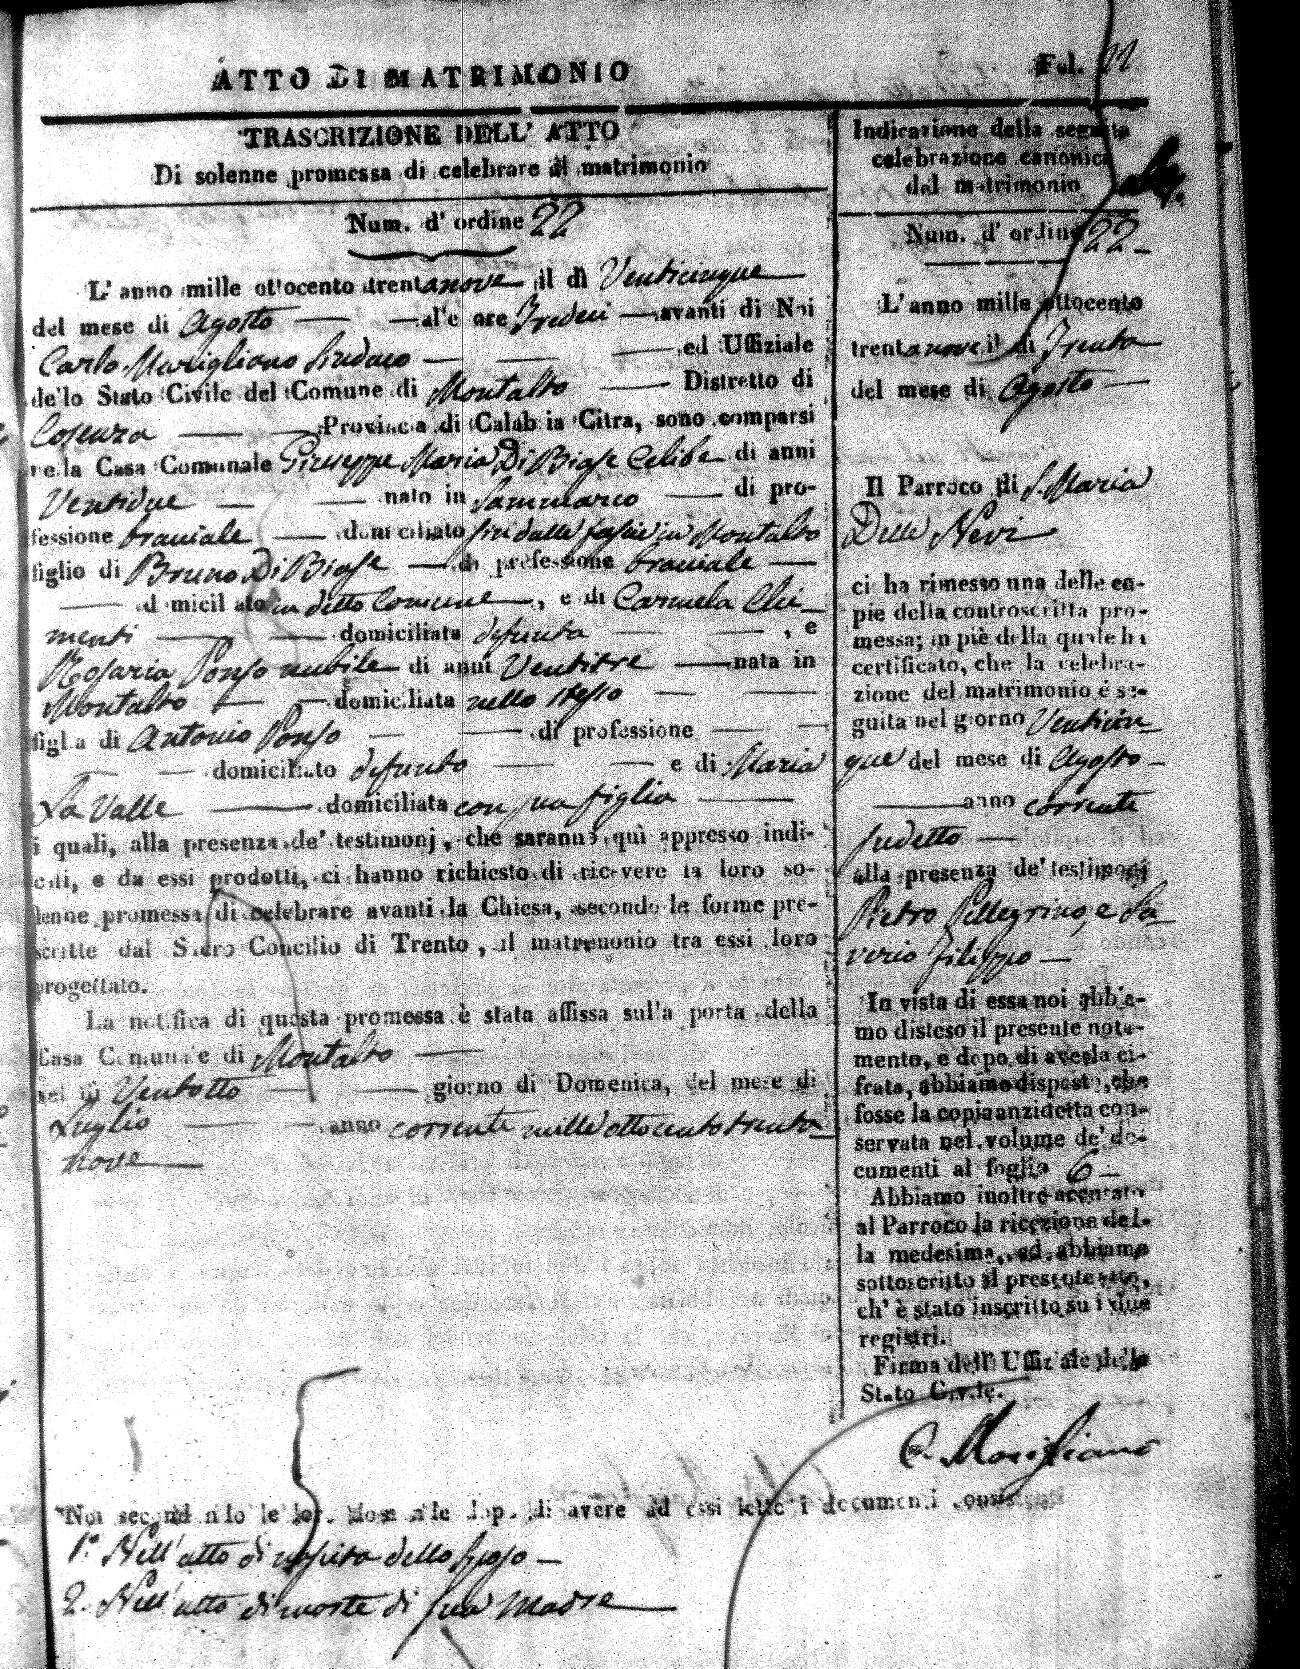 ATTO DI MATRIMONIO
Fol. 22
TRASCRIZIONE DELL' ATTO
Di solenne promessa di celebrare il matrimonio
Num. d' ordine 22
L' anno mille ottocento trentanove il dì Venticinque
del mese di Agosto — alle ore Tredici — avanti di Noi
Carlo Marigliano Sindaco — ed Uffiziale
dello Stato Civile del Comune di Montalto — Distretto di
Cosenza — Provincia di Calabria Citra, sono comparsi
nella Casa Comunale Giuseppe Maria Di Biase Celibe di anni
Ventidue — nato in Sammarco — di pro-
fessione bracciale — domiciliato fin dalle fascie in Montalto
figlio di Bruno Di Biase — di professione bracciale —
— domiciliato in detto Comune —, e di Carmela Cli-
menti — domiciliata defunta — , e
Rosaria Ponso nubile di anni Ventitre — nata in
Montalto — domiciliata nello stesso —
figlia di Antonio Ponso — di professione —
— domiciliato defunto — e di Maria
La Valle — domiciliata con sua figlia —
i quali, alla presenza de' testimonj, che saranno quì appresso indi-
cati, e da essi prodotti, ci hanno richiesto di ricevere la loro so-
lenne promessa di celebrare avanti la Chiesa, secondo le forme pre-
scritte dal Sacro Concilio di Trento, il matrimonio tra essi loro
progettato.
La notifica di questa promessa è stata affissa sulla porta della
Casa Comunale di Montalto —
nel dì Ventotto — giorno di Domenica, del mese di
Luglio — anno corrente mille ottocento trenta
nove —
Noi secondando le loro di avere ad essi letto i documenti
1.° Nell'atto di nascita dello sposo —
2. Nell'atto di morte di sua Madre —
Indicazione della seguita
celebrazione canonica
del matrimonio
Num. d' ordine 22 —
L' anno mille ottocento
trentanove il dì Trenta
del mese di Agosto —
Il Parroco di S. Maria
Delle Nevi
ci ha rimesso una delle co-
pie della controscritta pro-
messa; in piè della quale ha
certificato, che la celebra-
zione del matrimonio è se-
guita nel giorno Venticin-
que del mese di Agosto —
— anno corrente
sudetto —
alla presenza de' testimonj
Pietro Pellegrino, e Sa-
verio Filippo —
In vista di essa noi abbia-
mo disteso il presente nota-
mento, e dopo di averla ci-
frata, abbiamo disposto, che
fosse la copia anzidetta con-
servata nel volume de' do-
cumenti al foglio 6 —
Abbiamo inoltre accertato
al Parroco la ricezione del-
la medesima, ed abbiamo
sottoscritto il presente atto,
ch' è stato inscritto su i due
registri.
Firma dell' Uffiziale dello
Stato Civile.
C. Marigliano